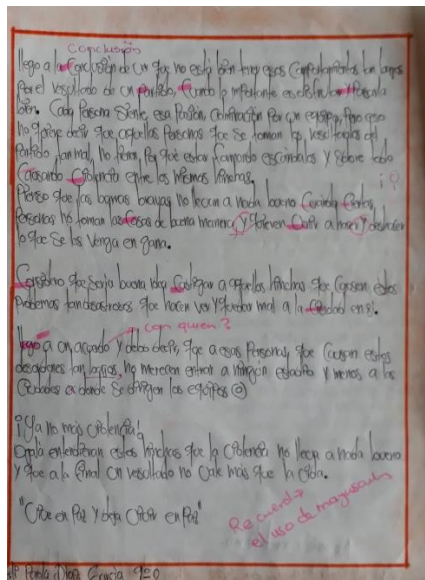 Conclusión
llego a la Conclusión de un que no está bien tener esos Comportamientos tan
por el resultado de un partido, Cuando lo importante es disfrutar y Pasarla
bien. Cada Persona Siente, esa Pasión, por un equipo, Pero eso
no quiere decir que aquellas Personas que se toman los resultados del
Partido tan mal, no tienen, Por qué estar formando escándalos y sobre todo
Causando violencia entre los mismos hinchas.
Pienso que las barras bravas no llevan a nada bueno Cuando Ciertas
Personas no toman las Cosas de buena manera y quieren a hacer y deshacer
lo que se les Venga en gana.
Considero que sería buena idea Castigar a aquellos hinchas que Causan estos
Problemas tan desastrosos que hacen ver y quedar mal a la Ciudad en sí.
con quien?
llego a un acuerdo y debo decir, que a esas Personas, que Causan estos
desordenes no merecen entrar a ningún estadio y menos a las
Ciudades en donde se dirigen los equipos
¡Ya no más violencia!
Ojalá entendieran estos hinchas que la violencia no lleva a nada bueno
y que a la final un resultado no vale más que la vida.
"Vive en Paz y deja vivir en Paz"
Recuerda
el uso de mayúsculas
Paola Díaz García 9°0